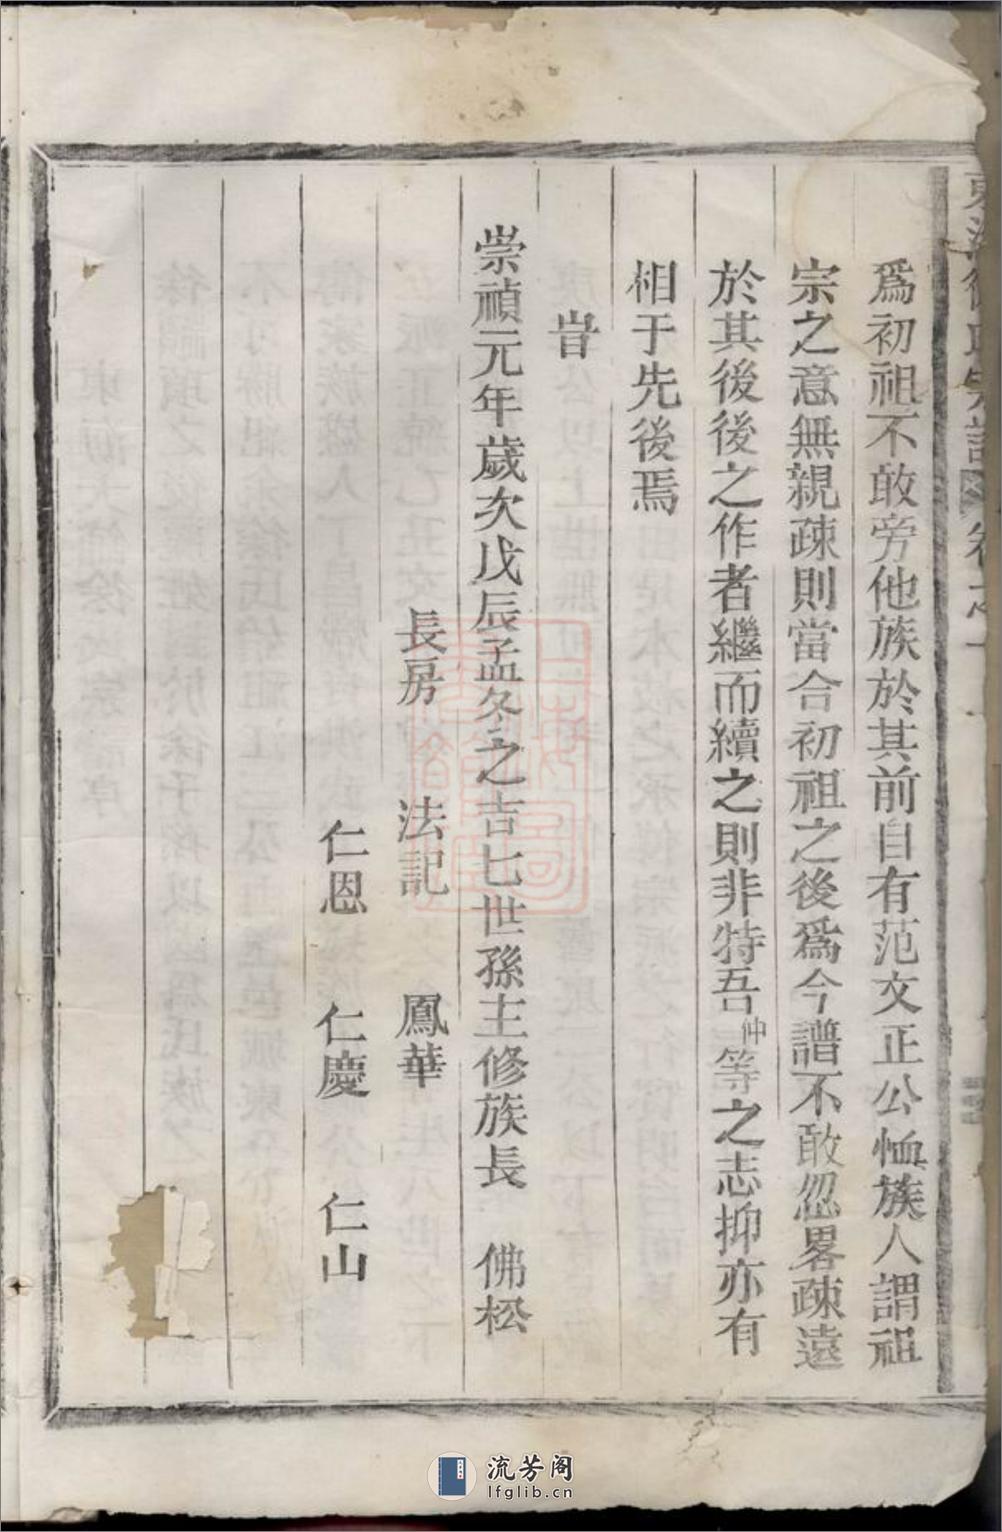 東海徐氏宗譜 卷之一
爲初祖不敢旁他族於其前自有范文正公恤族人謂祖
宗之意無親疎則當合初祖之後爲今譜不敢忽畧疎遠
於其後後之作者繼而續之則非特吾仲等之志抑亦有
相于先後焉
旹
崇禎元年歲次戊辰孟冬之吉七世孫主修族長 佛松
長房 法記 鳳華
仁恩 仁慶 仁山
流芳阁
lfglib.cn